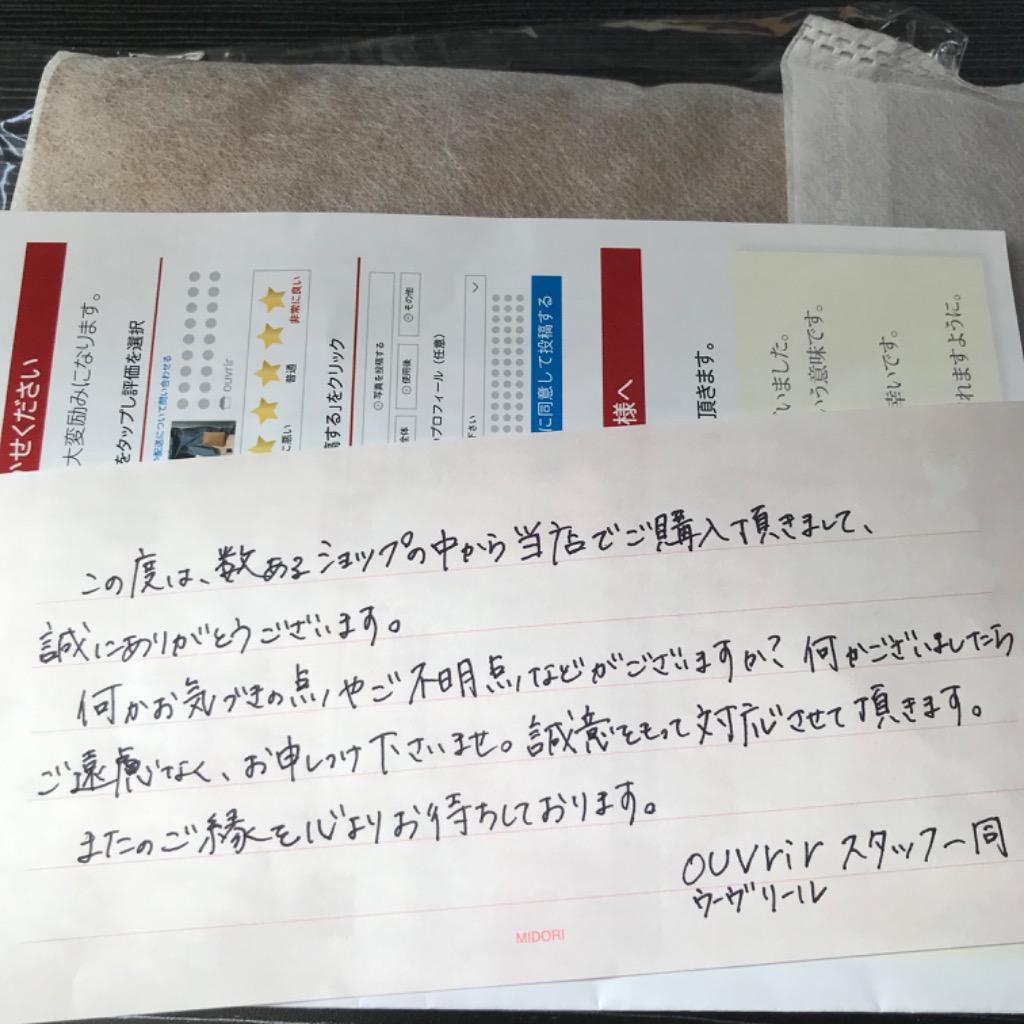 この度は、数あるショップの中から当店でご購入頂きまして、
誠にありがとうございます。
何かお気づきの点やご不明点などがございますか？何かございましたら
ご遠慮なく、お申しつけ下さいませ。誠意をもって対応させて頂きます。
またのご縁を心よりお待ちしております。
ouvrir スタッフ一同
ウーヴリール
MIDORI
せください
大変励みになります。
をタップし評価を選択
配送について問い合わせる
ouvrir
に悪い 普通 非常に良い
する」をクリック
写真を投稿する
全体 使用後 その他
プロフィール（任意）
下さい
に同意して投稿する
様へ
頂きます。
いました。
いう意味です。
幸いです。
れますように。